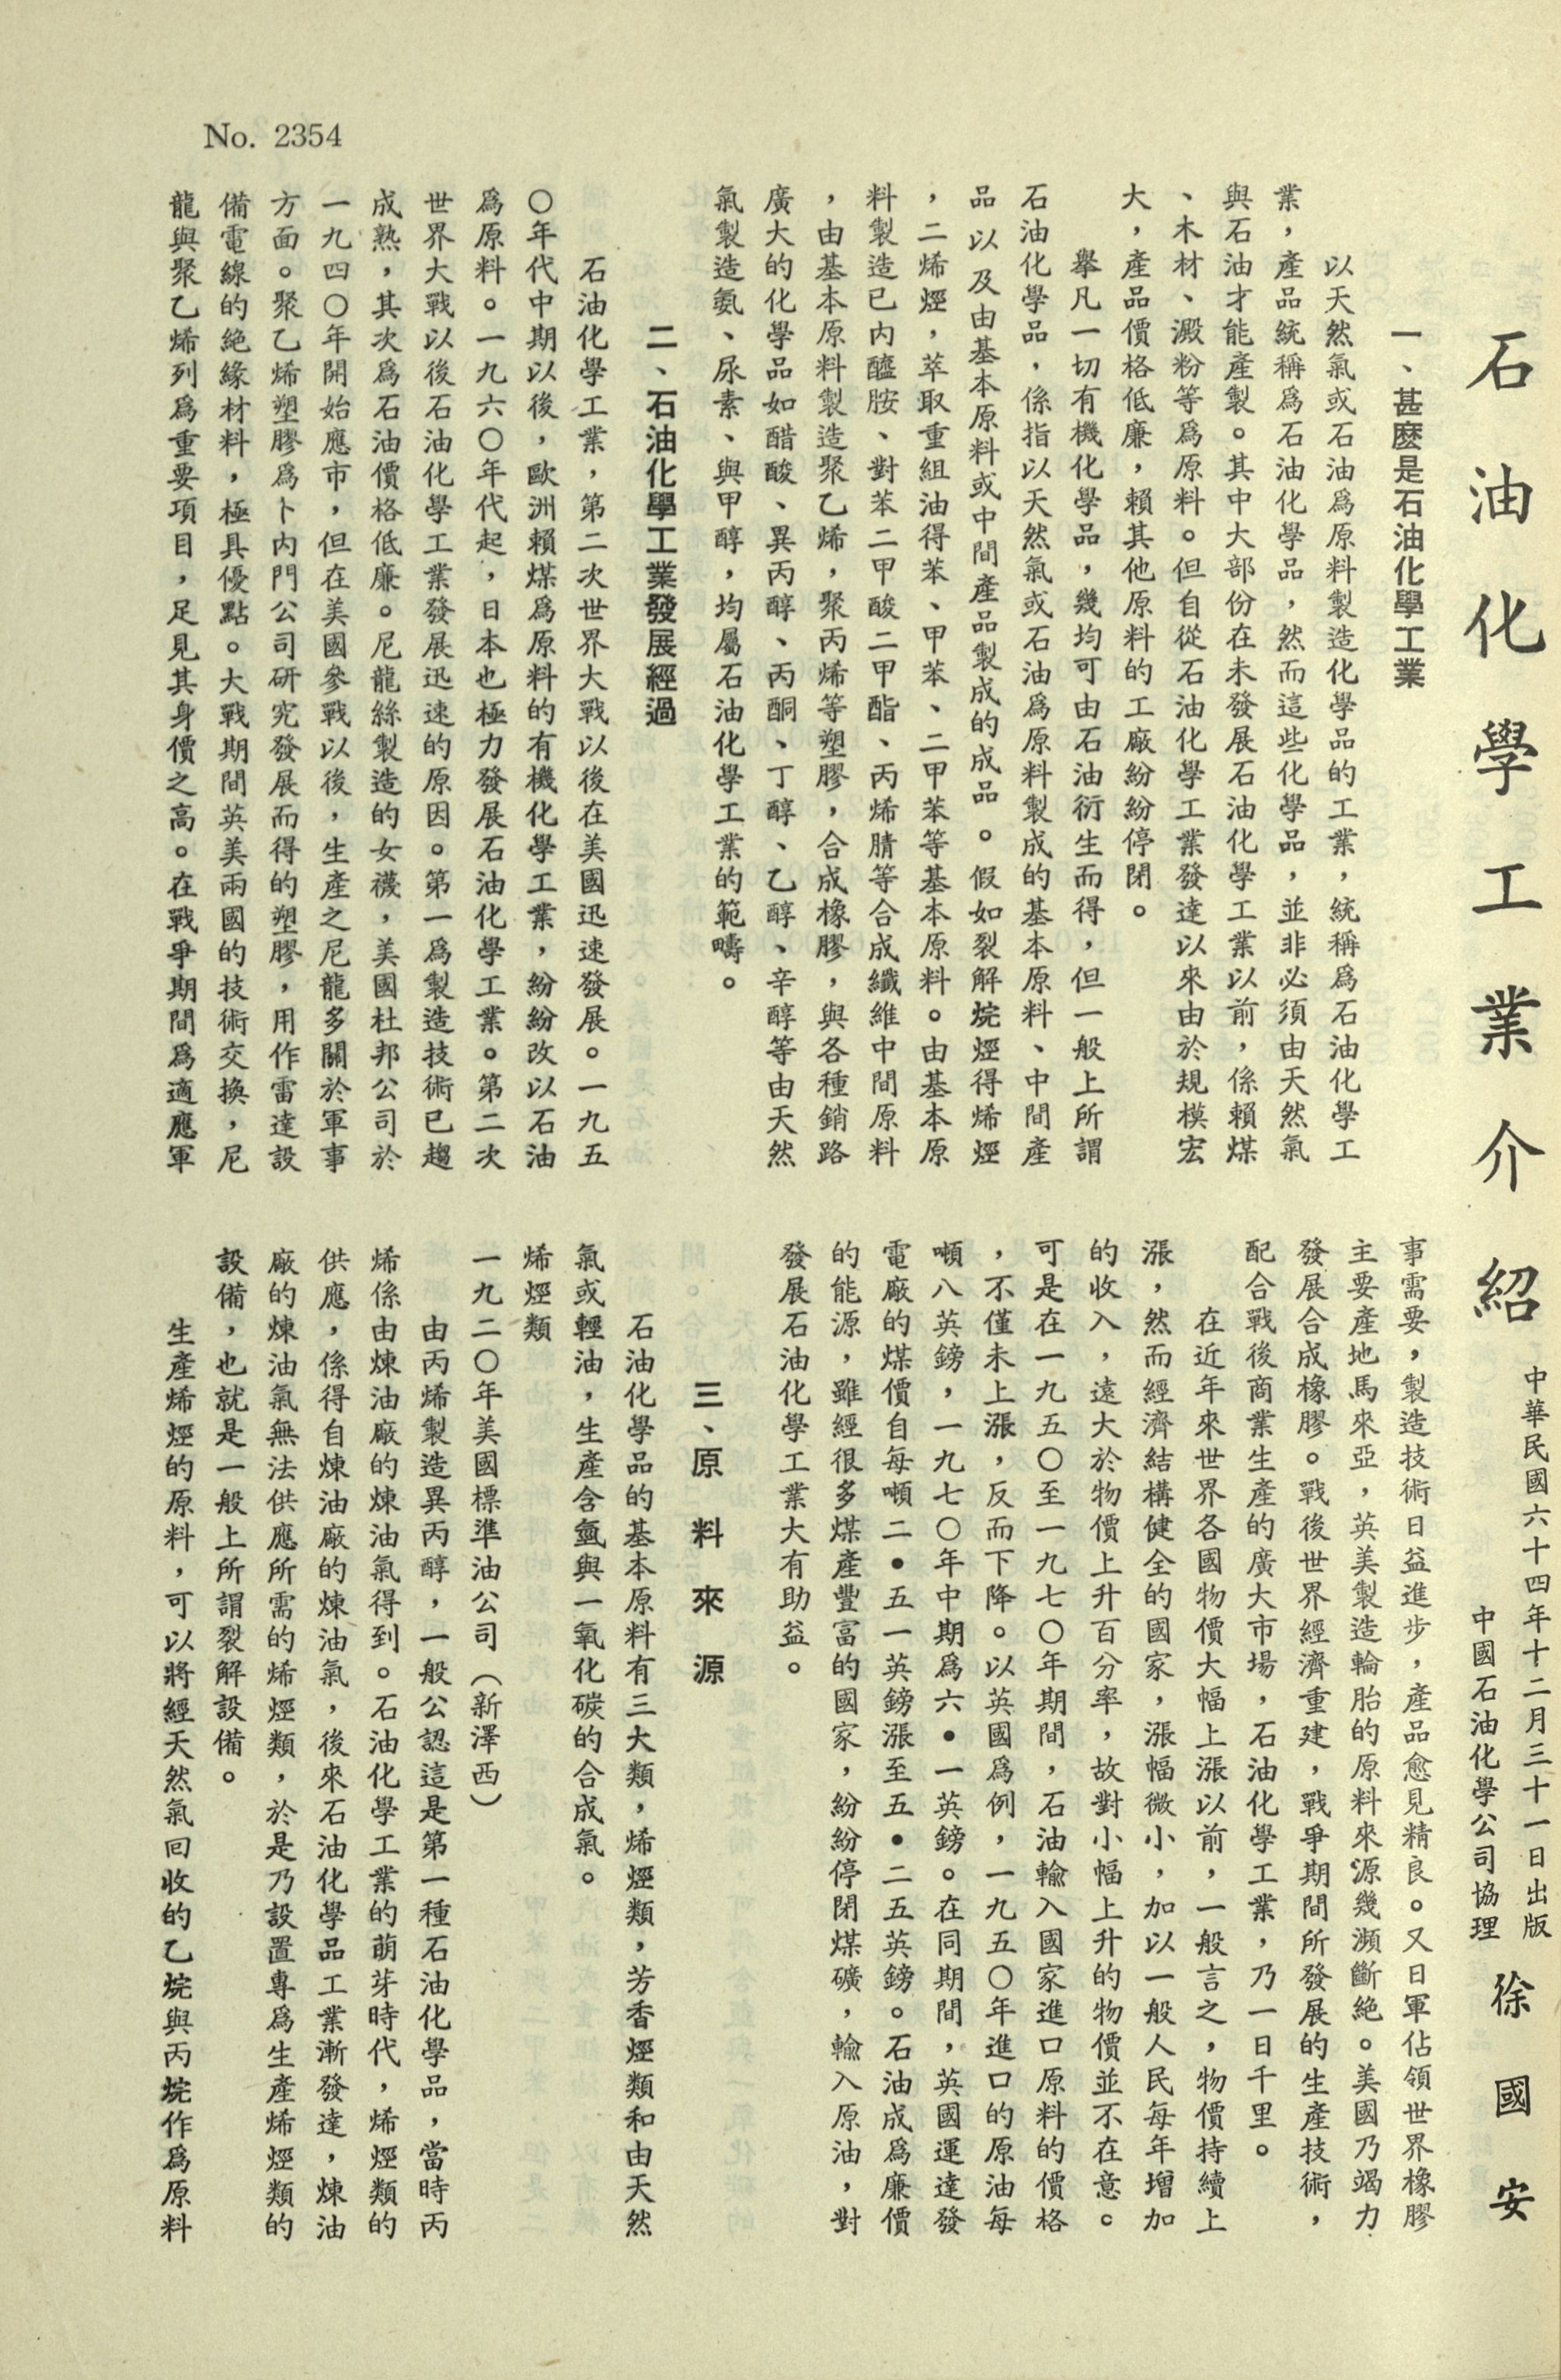 No. 2354
石油化學工業介紹
中華民國六十四年十二月三十一日出版
中國石油化學公司協理
徐國安
一、甚麼是石油化學工業
以天然氣或石油爲原料製造化學品的工業，統稱爲石油化學工
業，產品統稱爲石油化學品，然而這些化學品，並非必須由天然氣
與石油才能產製。其中大部份在未發展石油化學工業以前，係賴煤
、木材、澱粉等爲原料。但自從石油化學工業發達以來由於規模宏
大，產品價格低廉，賴其他原料的工廠紛紛停閉。
舉凡一切有機化學品，幾均可由石油衍生而得，但一般上所謂
石油化學品，係指以天然氣或石油爲原料製成的基本原料、中間產
品以及由基本原料或中間產品製成的成品。假如裂解烷烴得烯烴
，二烯烴，萃取重組油得苯、甲苯、二甲苯等基本原料。由基本原
料製造已內醯胺、對苯二甲酸二甲酯、丙烯腈等合成纖維中間原料
，由基本原料製造聚乙烯，聚丙烯等塑膠，合成橡膠，與各種銷路
廣大的化學品如醋酸、異丙醇、丙酮、丁醇、乙醇、辛醇等由天然
氣製造氨、尿素、與甲醇，均屬石油化學工業的範疇。
二、石油化學工業發展經過
石油化學工業，第二次世界大戰以後在美國迅速發展。一九五
〇年代中期以後，歐洲賴煤爲原料的有機化學工業，紛紛改以石油
爲原料。一九六〇年代起，日本也極力發展石油化學工業。第二次
世界大戰以後石油化學工業發展迅速的原因。第一爲製造技術已趨
成熟，其次爲石油價格低廉。尼龍絲製造的女襪，美國杜邦公司於
一九四〇年開始應市，但在美國參戰以後，生產之尼龍多關於軍事
方面。聚乙烯塑膠爲卜內門公司研究發展而得的塑膠，用作雷達設
備電線的絕緣材料，極具優點。大戰期間英美兩國的技術交換，尼
龍與聚乙烯列爲重要項目，足見其身價之高。在戰爭期間爲適應軍
事需要，製造技術日益進步，產品愈見精良。又日軍佔領世界橡膠
主要產地馬來亞，英美製造輪胎的原料來源幾瀕斷絕。美國乃竭力
發展合成橡膠。戰後世界經濟重建，戰爭期間所發展的生產技術，
配合戰後商業生產的廣大市場，石油化學工業，乃一日千里。
在近年來世界各國物價大幅上漲以前，一般言之，物價持續上
漲，然而經濟結構健全的國家，漲幅微小，加以一般人民每年增加
的收入，遠大於物價上升百分率，故對小幅上升的物價並不在意。
可是在一九五〇至一九七〇年期間，石油輸入國家進口原料的價格
，不僅未上漲，反而下降。以英國爲例，一九五〇年進口的原油每
噸八英鎊，一九七〇年中期爲六•一英鎊。在同期間，英國運達發
電廠的煤價自每噸二•五一英鎊漲至五•二五英鎊。石油成爲廉價
的能源，雖經很多煤產豐富的國家，紛紛停閉煤礦，輸入原油，對
發展石油化學工業大有助益。
三、原料來源
石油化學品的基本原料有三大類，烯烴類，芳香烴類和由天然
氣或輕油，生產含氫與一氧化碳的合成氣。
烯烴類
一九二〇年美國標準油公司（新澤西）
由丙烯製造異丙醇，一般公認這是第一種石油化學品，當時丙
烯係由煉油廠的煉油氣得到。石油化學工業的萌芽時代，烯烴類的
供應，係得自煉油廠的煉油氣，後來石油化學品工業漸發達，煉油
廠的煉油氣無法供應所需的烯烴類，於是乃設置專爲生產烯烴類的
設備，也就是一般上所謂裂解設備。
生產烯烴的原料，可以將經天然氣回收的乙烷與丙烷作爲原料